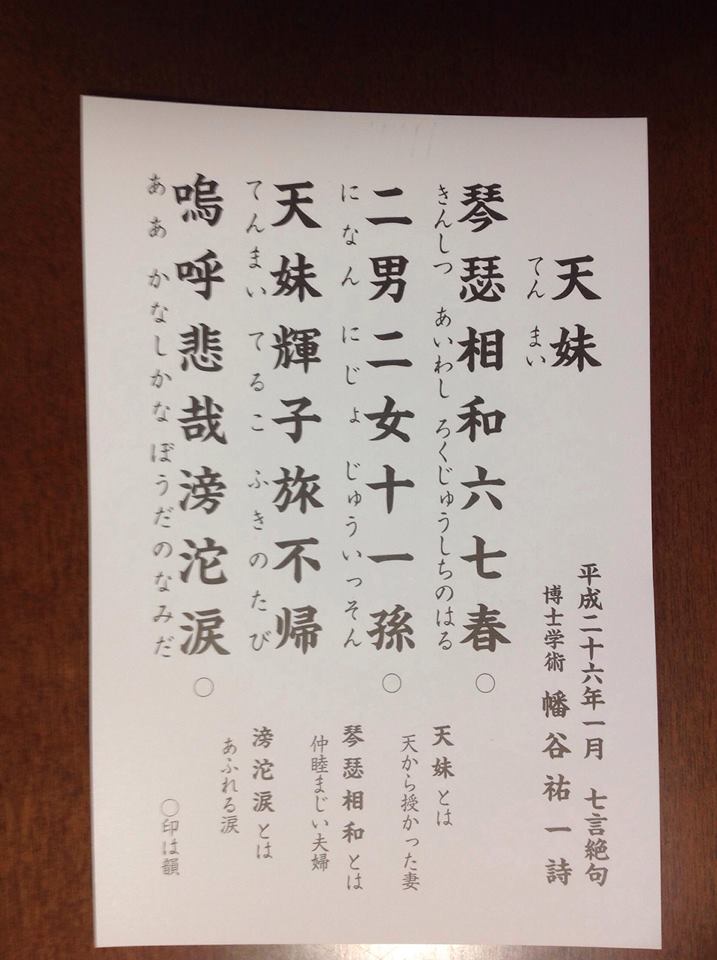 天妹
てんまい
平成二十六年一月　七言絶句
博士学術　幡谷祐一詩
琴瑟相和六七春○
きんしつ　あいわし　ろくじゅうしちのはる
二男二女十一孫○
になん　にじょ　じゅういっそん
天妹輝子旅不帰
てんまい　てるこ　ふきのたび
嗚呼悲哉滂沱涙○
ああ　かなしかな　ぼうだのなみだ
天妹とは
天から授かった妻
琴瑟相和とは
仲睦まじい夫婦
滂沱涙とは
あふれる涙
○印は韻